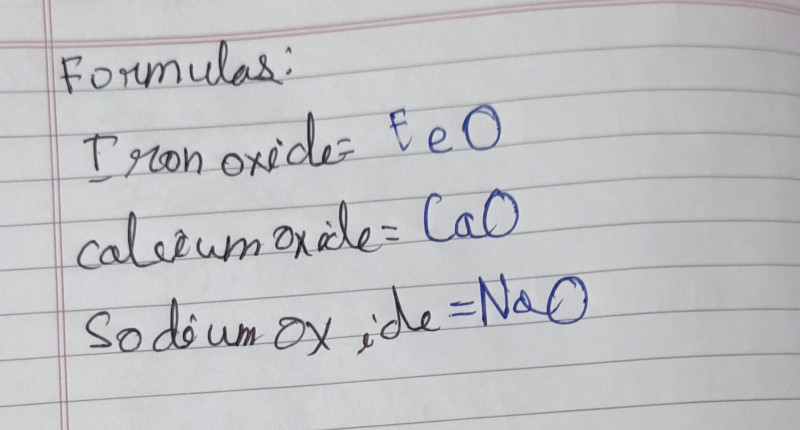 Formulas:
Iron oxide= FeO
calcium oxide= CaO
Sodium oxide=NaO